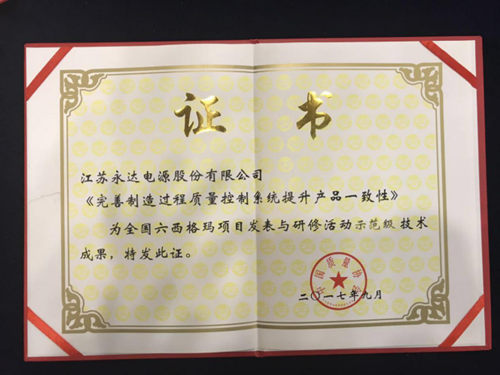 证书
江苏永达电源股份有限公司
《完善制造过程质量控制系统提升产品一致性》
为全国六西格玛项目发表与研修活动示范级技术
成果，特发此证。
中国质量协会
二〇一七年九月